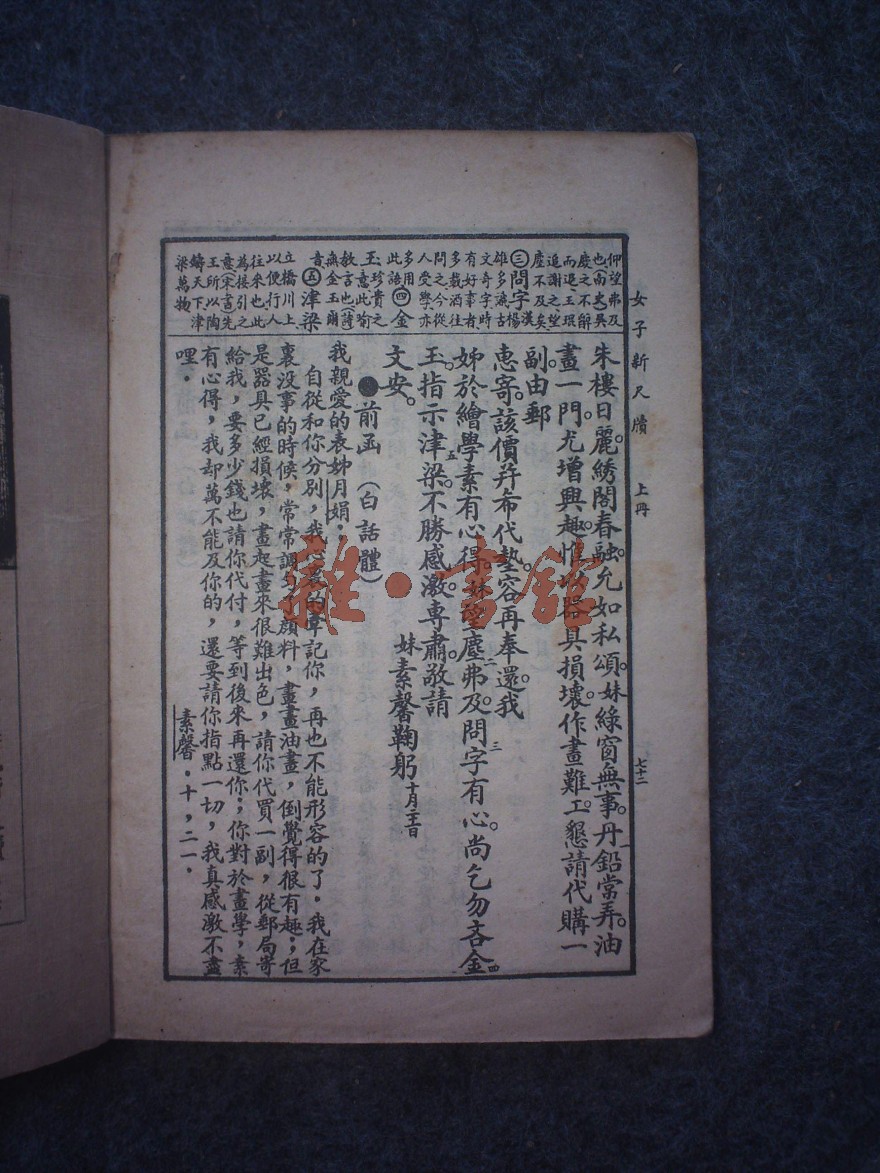 女子新尺牘　上冊　七十二
仰望弗及
也（南史吳
慶之不解
而退王琨
追謝之望
塵不及矣
三問字漢楊
雄多識古
文奇字時
有好事者
多載酒往
問之今從
人受學亦
多用
此語四金
玉珍貴之
意此喻
教言也（詩）
無金玉爾
音五津梁
立橋川上
以便行人
往來也此
為接引之
意（宋書）先
王所以陶
鑄天下津
梁萬物
朱樓日麗。綉閣春融。允如私頌。妹綠窗無事。丹鉛常弄。油一
畫一門。尤增興趣。惟以器具損壞。作畫難工。懇請代購一
副。由郵
惠寄。該價幷希代墊。容再奉還。我
姊於繪學素有心得。妹望塵弗及。二問字有心。三尚乞勿吝金四
玉。指示津梁。五不勝感激。專肅。敬請
文安。
妹素馨鞠躬十月二十一日
●前函（白話體）
我親愛的表姊月娟．
自從和你分別，我心裏的牽記你，再也不能形容的了．我在家
裏没事的時候，常常調勻顏料，畫畫油畫，倒覺得很有趣；但
是器具已經損壞，畫起畫來很難出色，請你代買一副，從郵局寄
給我，要多少錢也請你代付，等到後來再還你；你對於畫學，素
有心得，我却萬不能及你的，還要請你指點一切，我真感激不盡
哩．
素馨．十，二一．
雜·書館